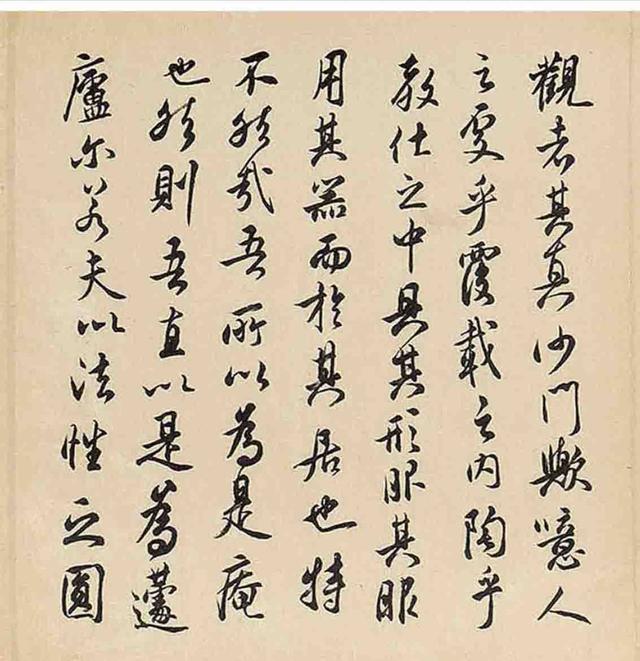 觀者其真沙門歟噫人
之處乎覆載之内陶乎
教化之中具其形服其服
用其器而於其居也特
不然哉吾所以為是庵
也然則吾直以是為蘧
廬尔若夫以法性之圓